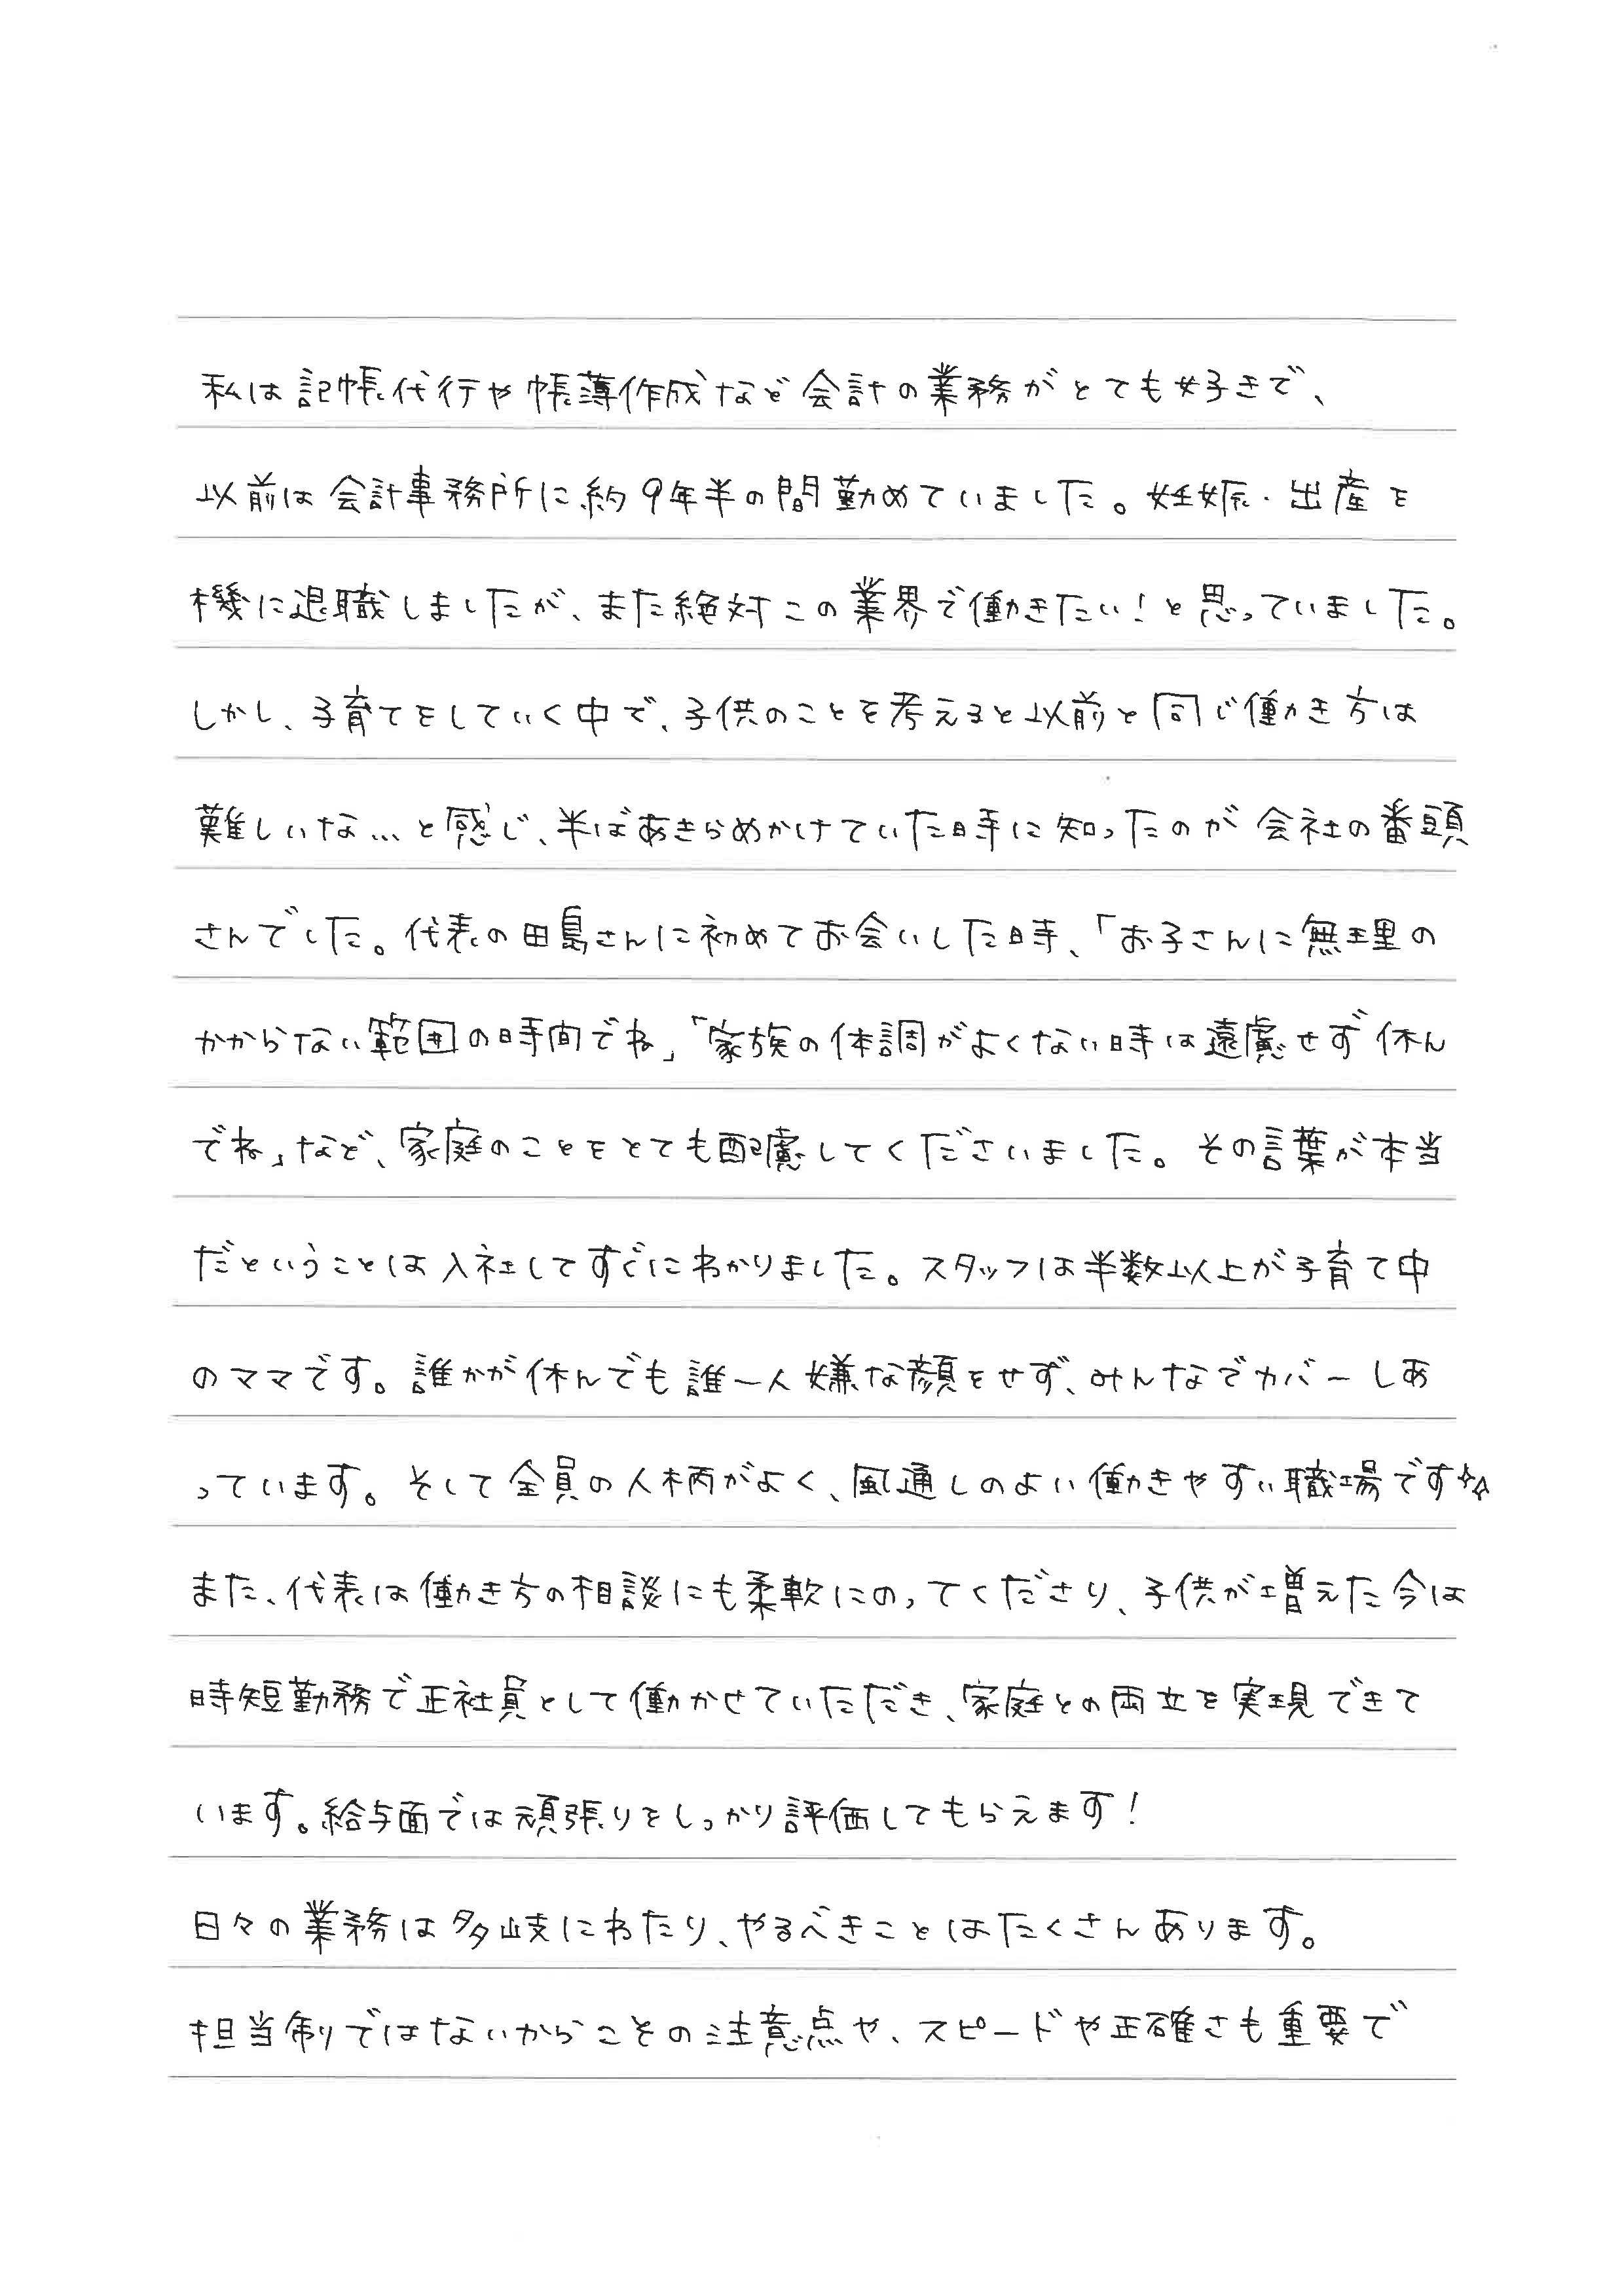 私は記帳代行や帳薄作成など会計の業務がとても好きで、
以前は会計事務所に約9年半の間勤めていました。妊娠・出産を
機に退職しましたが、また絶対この業界で働きたい！と思っていました。
しかし、子育てをしていく中で、子供のことを考えると以前と同じ働き方は
難しいな…と感じ、半ばあきらめかけていた時に知ったのが会社の番頭
さんでした。代表の田島さんに初めてお会いした時、「お子さんに無理の
かからない範囲の時間でね」「家族の体調がよくない時は遠慮せず休ん
でね」など、家庭のことをとても配慮してくださいました。その言葉が本当
だということは入社してすぐにわかりました。スタッフは半数以上が子育て中
のママです。誰かが休んでも誰一人嫌な顔をせず、みんなでカバーしあ
っています。そして全員の人柄がよく、風通しのよい働きやすい職場です☆☆
また、代表は働き方の相談にも柔軟にのってくださり、子供が増えた今は
時短勤務で正社員として働かせていただき、家庭との両立を実現できて
います。給与面では頑張りをしっかり評価してもらえます！
日々の業務は多岐にわたり、やるべきことはたくさんあります。
担当制ではないからことの注意点や、スピードや正確さも重要で